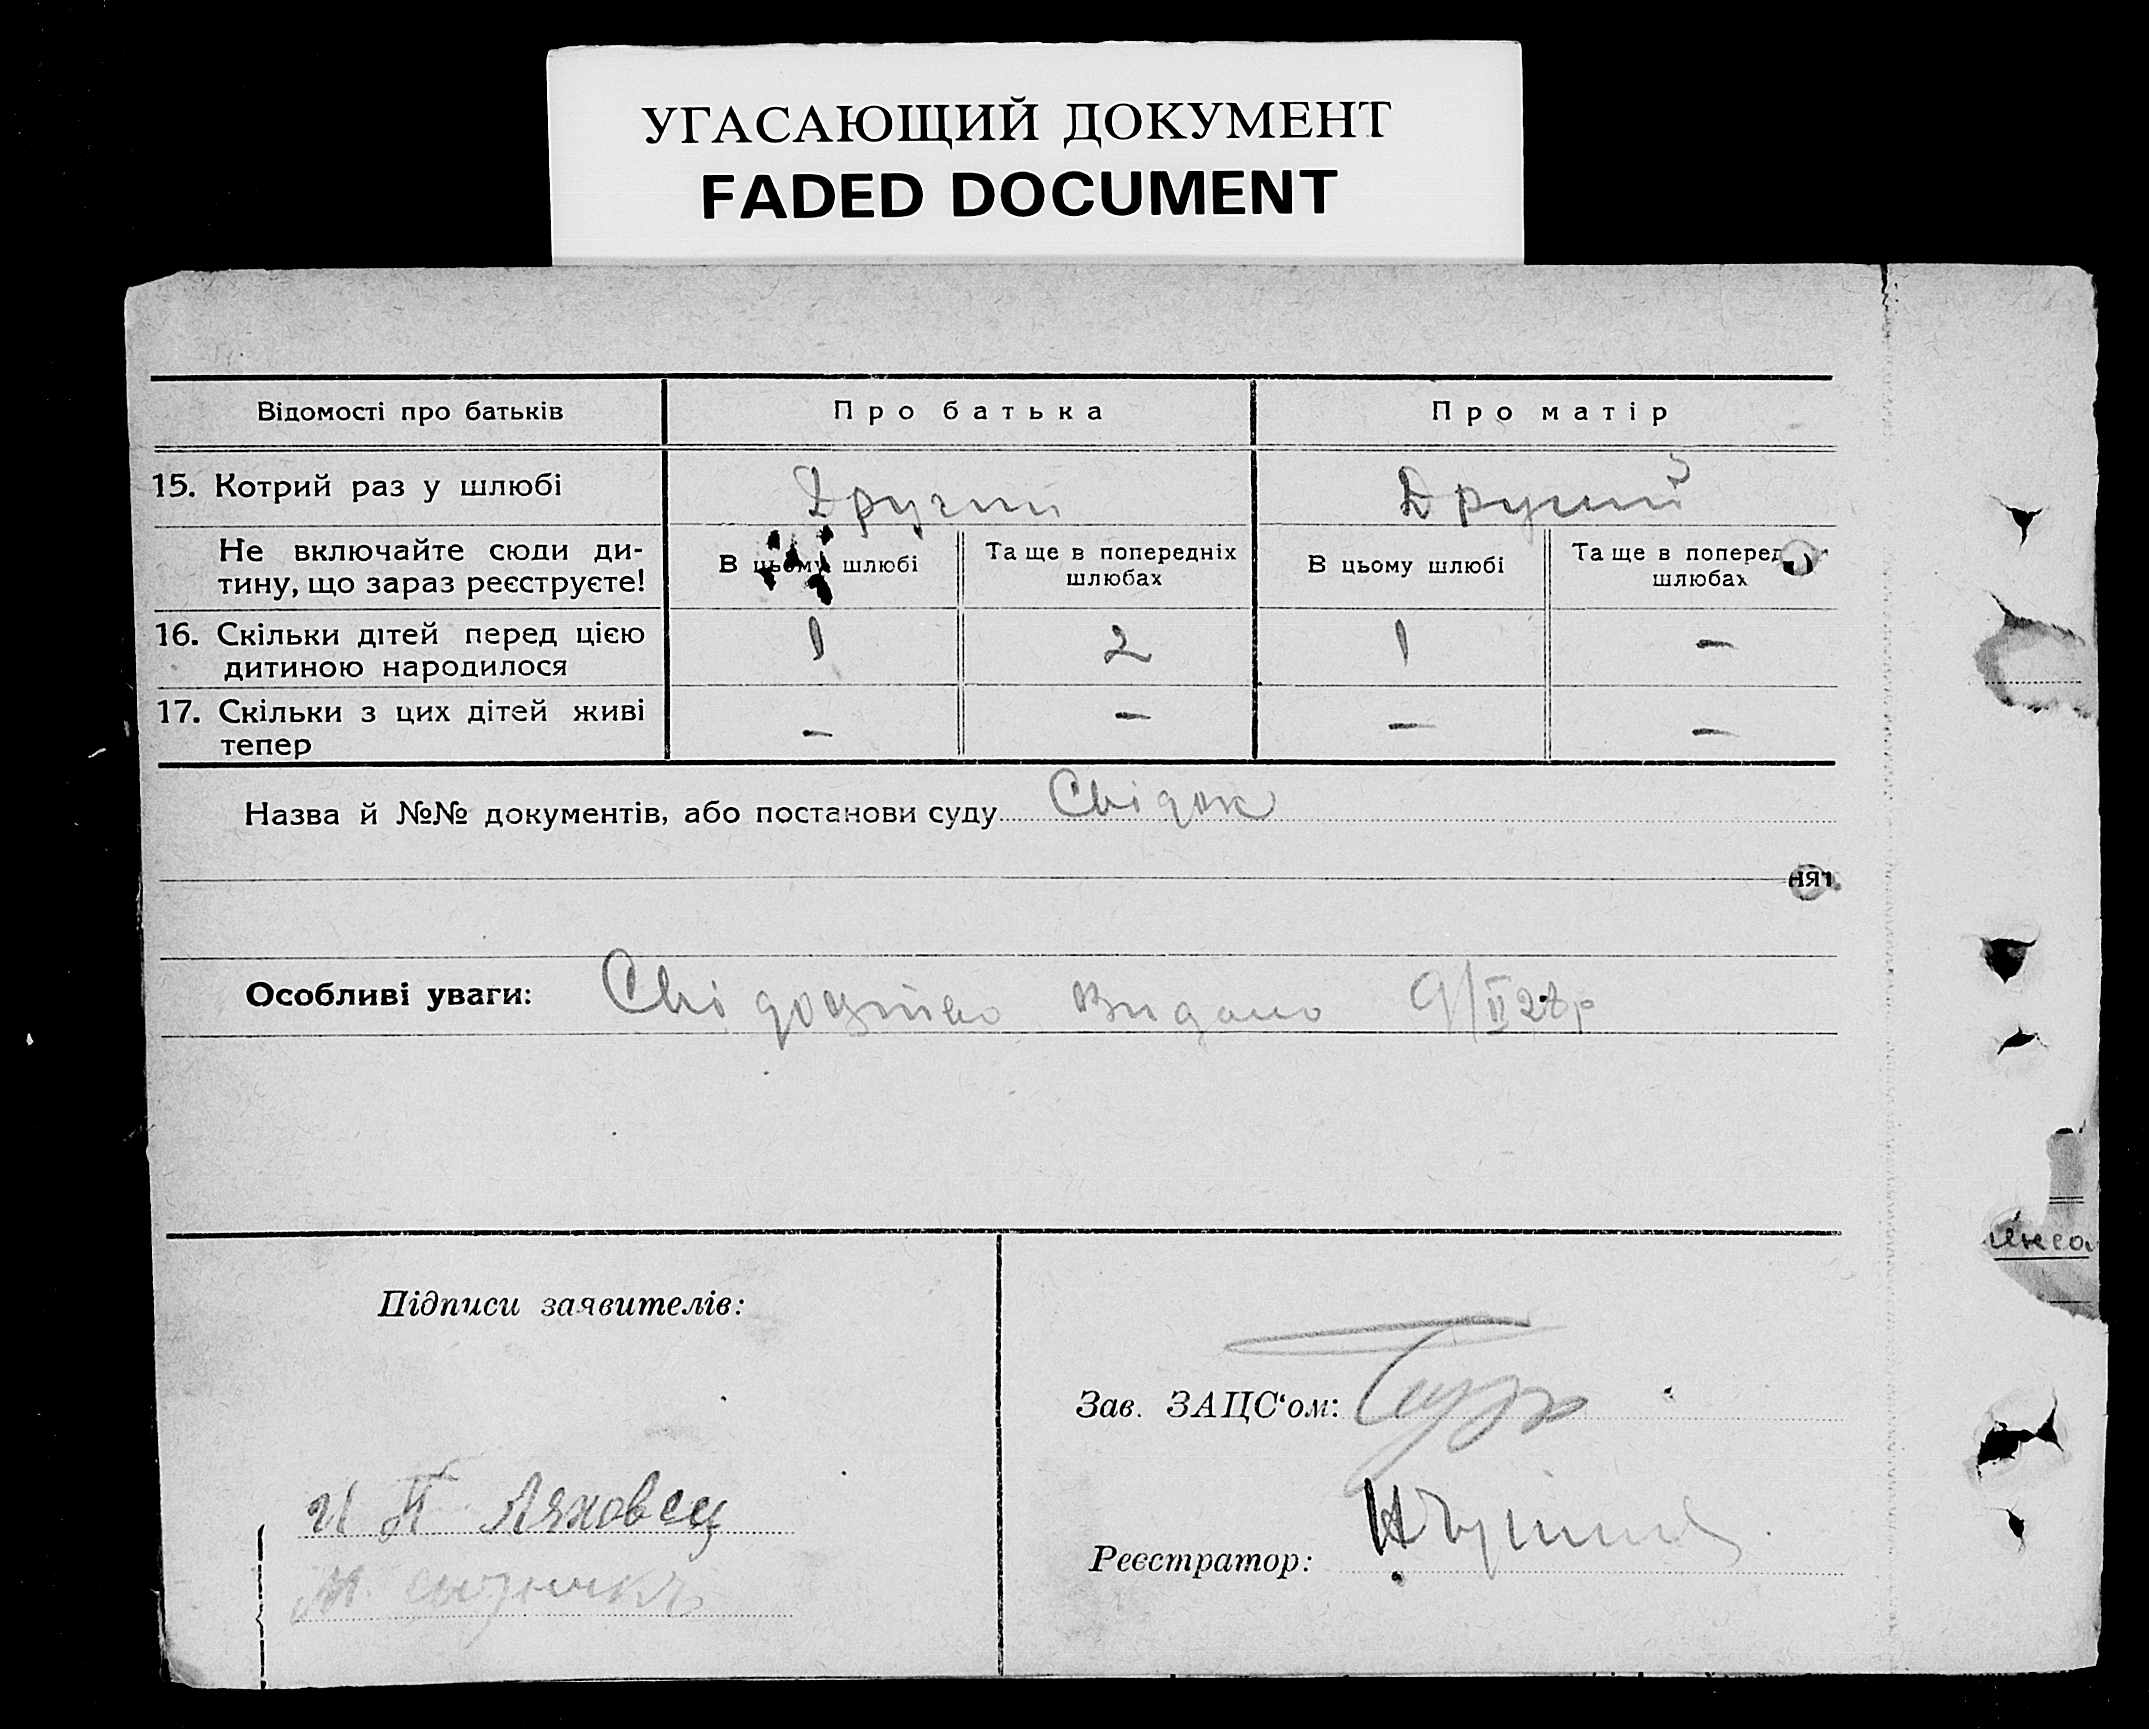 УГАСАЮЩИЙ ДОКУМЕНТ
FADED DOCUMENT
Відомості про батьків
Про батька
Про матір
15. Котрий раз у шлюбі
Другий
Другий
Не включайте сюди ди-
тину, що зараз реєструєте!
В цьому шлюбі
Та ще в попередніх
шлюбах
В цьому шлюбі
Та ще в поперед
шлюбах
16. Скільки дітей перед цією
дитиною народилося
1
2
1
—
17. Скільки з цих дітей живі
тепер
—
—
—
—
Назва й №№ документів, або постанови суду Свідок
Особливі уваги: Свідоцтво видано 9/II 28 р
Підписи заявителів:
Зав. ЗАЦС'ом:
И П Ляховец
Реєстратор: